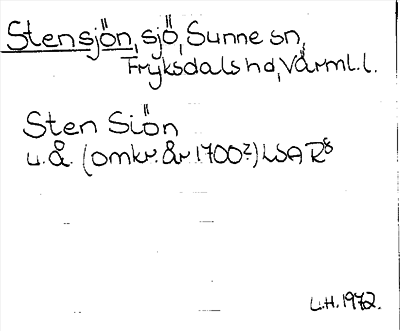 Stensjön, sjö, Sunne sn,
Fryksdals hd, Värml. l.
Sten Siön
u.å. (omkr. år 1700?) LSA R8
L.H. 1972.